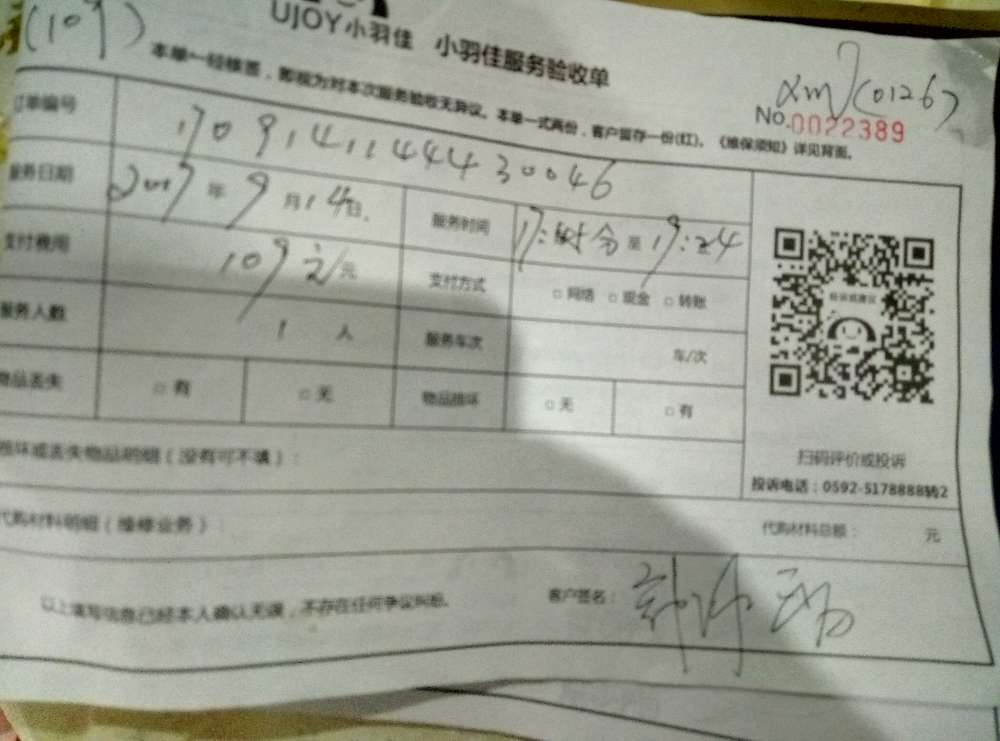 (109)
UJOY小羽佳 小羽佳服务验收单
xm(0126)
本单一经核签,即视为对本次服务验收无异议。本单一式两份,客户留存一份(红)。《维保须知》详见背面。
No.0022389
订单编号 17091411444430046
服务日期 2017年9月14日 服务时间 至19:24
支付费用 109元 支付方式 □网络 □现金 □转账
服务人数 1人 服务车次 车/次
物品丢失 □有 □无 物品损坏 □无 □有
扫码评价或投诉
投诉电话:0592-5178888转2
损坏或丢失物品明细(没有可不填):
代购材料明细(维修业务) 代购材料总额: 元
以上填写信息已经本人确认无误,不存在任何争议纠纷。 客户签名: